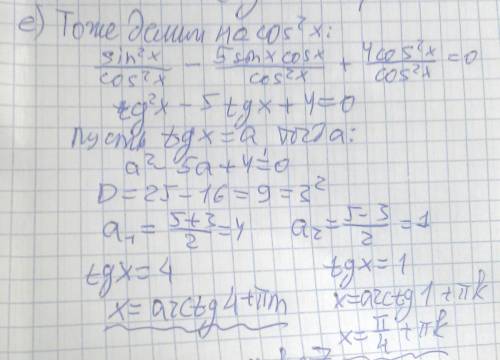 е) Тоже делим на cos²x:
sin²x/cos²x − 5sinx cosx/cos²x + 4cos²x/cos²x = 0
tg²x − 5tgx + 4 = 0
пусть tgx = a тогда:
a² − 5a + 4 = 0
D = 25 − 16 = 9 = 3²
a₁ = (5+3)/2 = 4 a₂ = (5−3)/2 = 1
tgx = 4 tgx = 1
x = arctg4 + πn x = arctg1 + πk
x = π/4 + πk